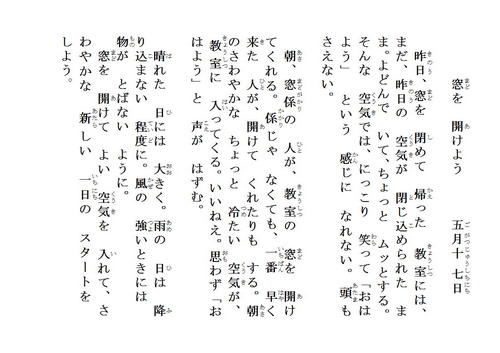 窓を 開けよう　五月十七日
昨日、窓を 閉めて 帰った 教室には、
まだ、昨日の 空気が 閉じ込められた ま
ま。よどんで いて、ちょっと ムッとする。
そんな 空気では、にっこり 笑って「おは
よう」 という 感じに なれない。頭も
さえない。
朝、窓係の 人が、教室の 窓を 開け
てくれる。係じゃ なくても、一番 早く
来た 人が、開けて くれたりも する。朝
のさわやかな ちょっと 冷たい 空気が、
教室に 入ってくる。いいねえ。思わず「お
はよう」と 声が はずむ。
晴れた 日には 大きく。雨の 日は 降
り込まない 程度に。風の 強いときには
物が とばない ように。
窓を 開けて よい 空気を 入れて、さ
わやかな 新しい 一日の スタートを
しよう。